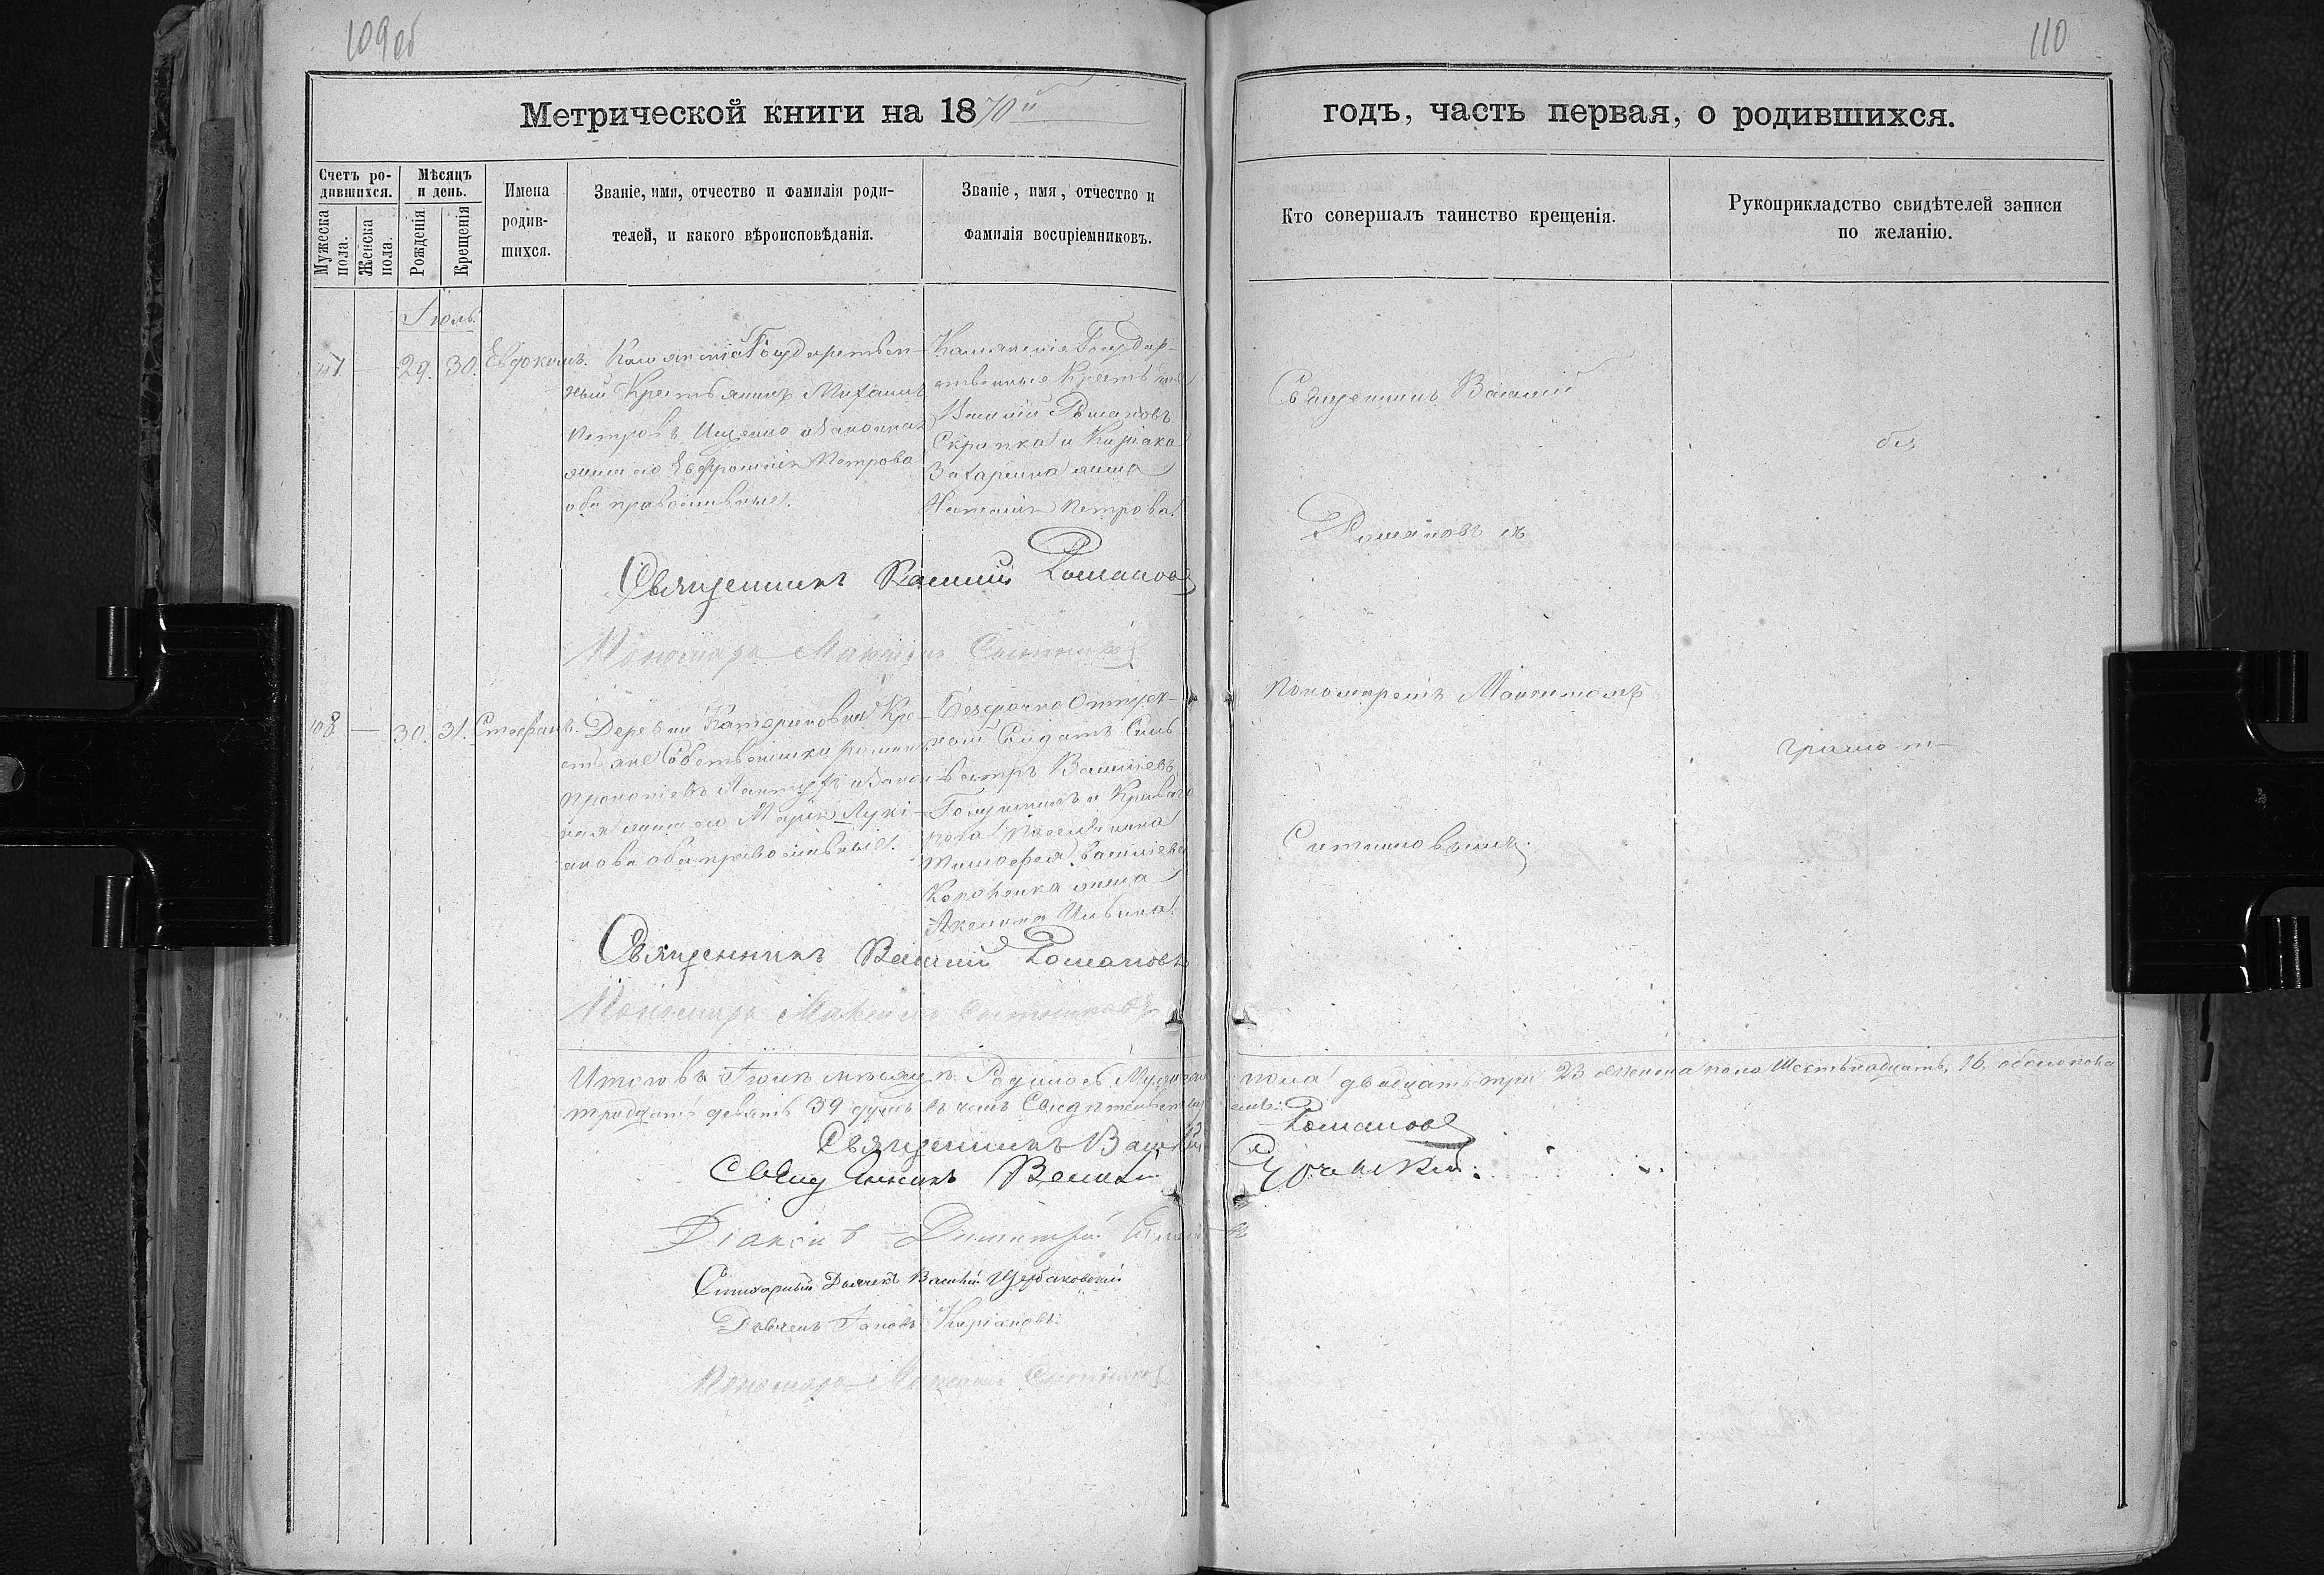 109 об
110
Метрической книги на 1870й
годъ, часть первая, о родившихся.
Счетъ родившихся.
Мужеска пола.
Женска пола.
Мѣсяцъ и день.
Рожденія
Крещенія
Имена
родив-
шихся.
Званіе, имя, отчество и фамилія роди-
телей, и какого вѣроисповѣданія.
Званіе, имя, отчество и
фамилія воспріемниковъ.
Кто совершалъ таинство крещенія.
Рукоприкладство свидѣтелей записи
по желанію.
Іюль.
29. 30. Евдокимъ.
Государствен-
ный Крестьянинъ Михаилъ
Петровъ Ищенко и законная
жена его Евфросинія Петрова
оба православные.
Государ-
ственные Крестьяне
Василій Романовъ
Скрипка и Киріака
Захаренка жена
Наталія Петрова.
Священникъ Василій
Романовъ съ
без
Священникъ Василій Романовъ
Пономарь Максимъ Ситниковъ
108 — 30. 31. Стефанъ.
Деревни Катериновки Кре-
стьяне Собственники Романъ
Прокопіевъ и закон-
ная жена его Марія Лукі-
анова оба православные.
Безсрочно Отпуск-
ной Солдатъ Силь-
вестръ Василіевъ
Тимофея Василіева
жена
Акелина
Пономаремъ Максимомъ
Ситниковымъ.
грамот
Священникъ Василій Романовъ
Пономарь Максимъ Ситниковъ
Итого въ Іюлѣ мѣсяцѣ Родилось Мужеска пола двадцать три 23 женска пола Шестьнадцать, 16, обоего пола
тридцать девять 39 душъ въ чемъ Свидѣтельствуемъ:
Священникъ Василій Романовъ
Священникъ Василій
Діаконъ Димитрій
Стихарный Дьячекъ Василій Щербаковскій
Дьячекъ Іаковъ Киріаковъ.
Пономарь Максимъ Ситниковъ